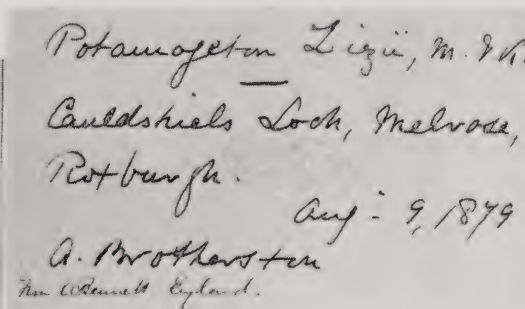 Potamogeton Zizii, M. & K.
Cauldshiels Loch, Melrose,
Roxburgh.
Aug: 9, 1879
A. Brotherston
from A Bennett England.